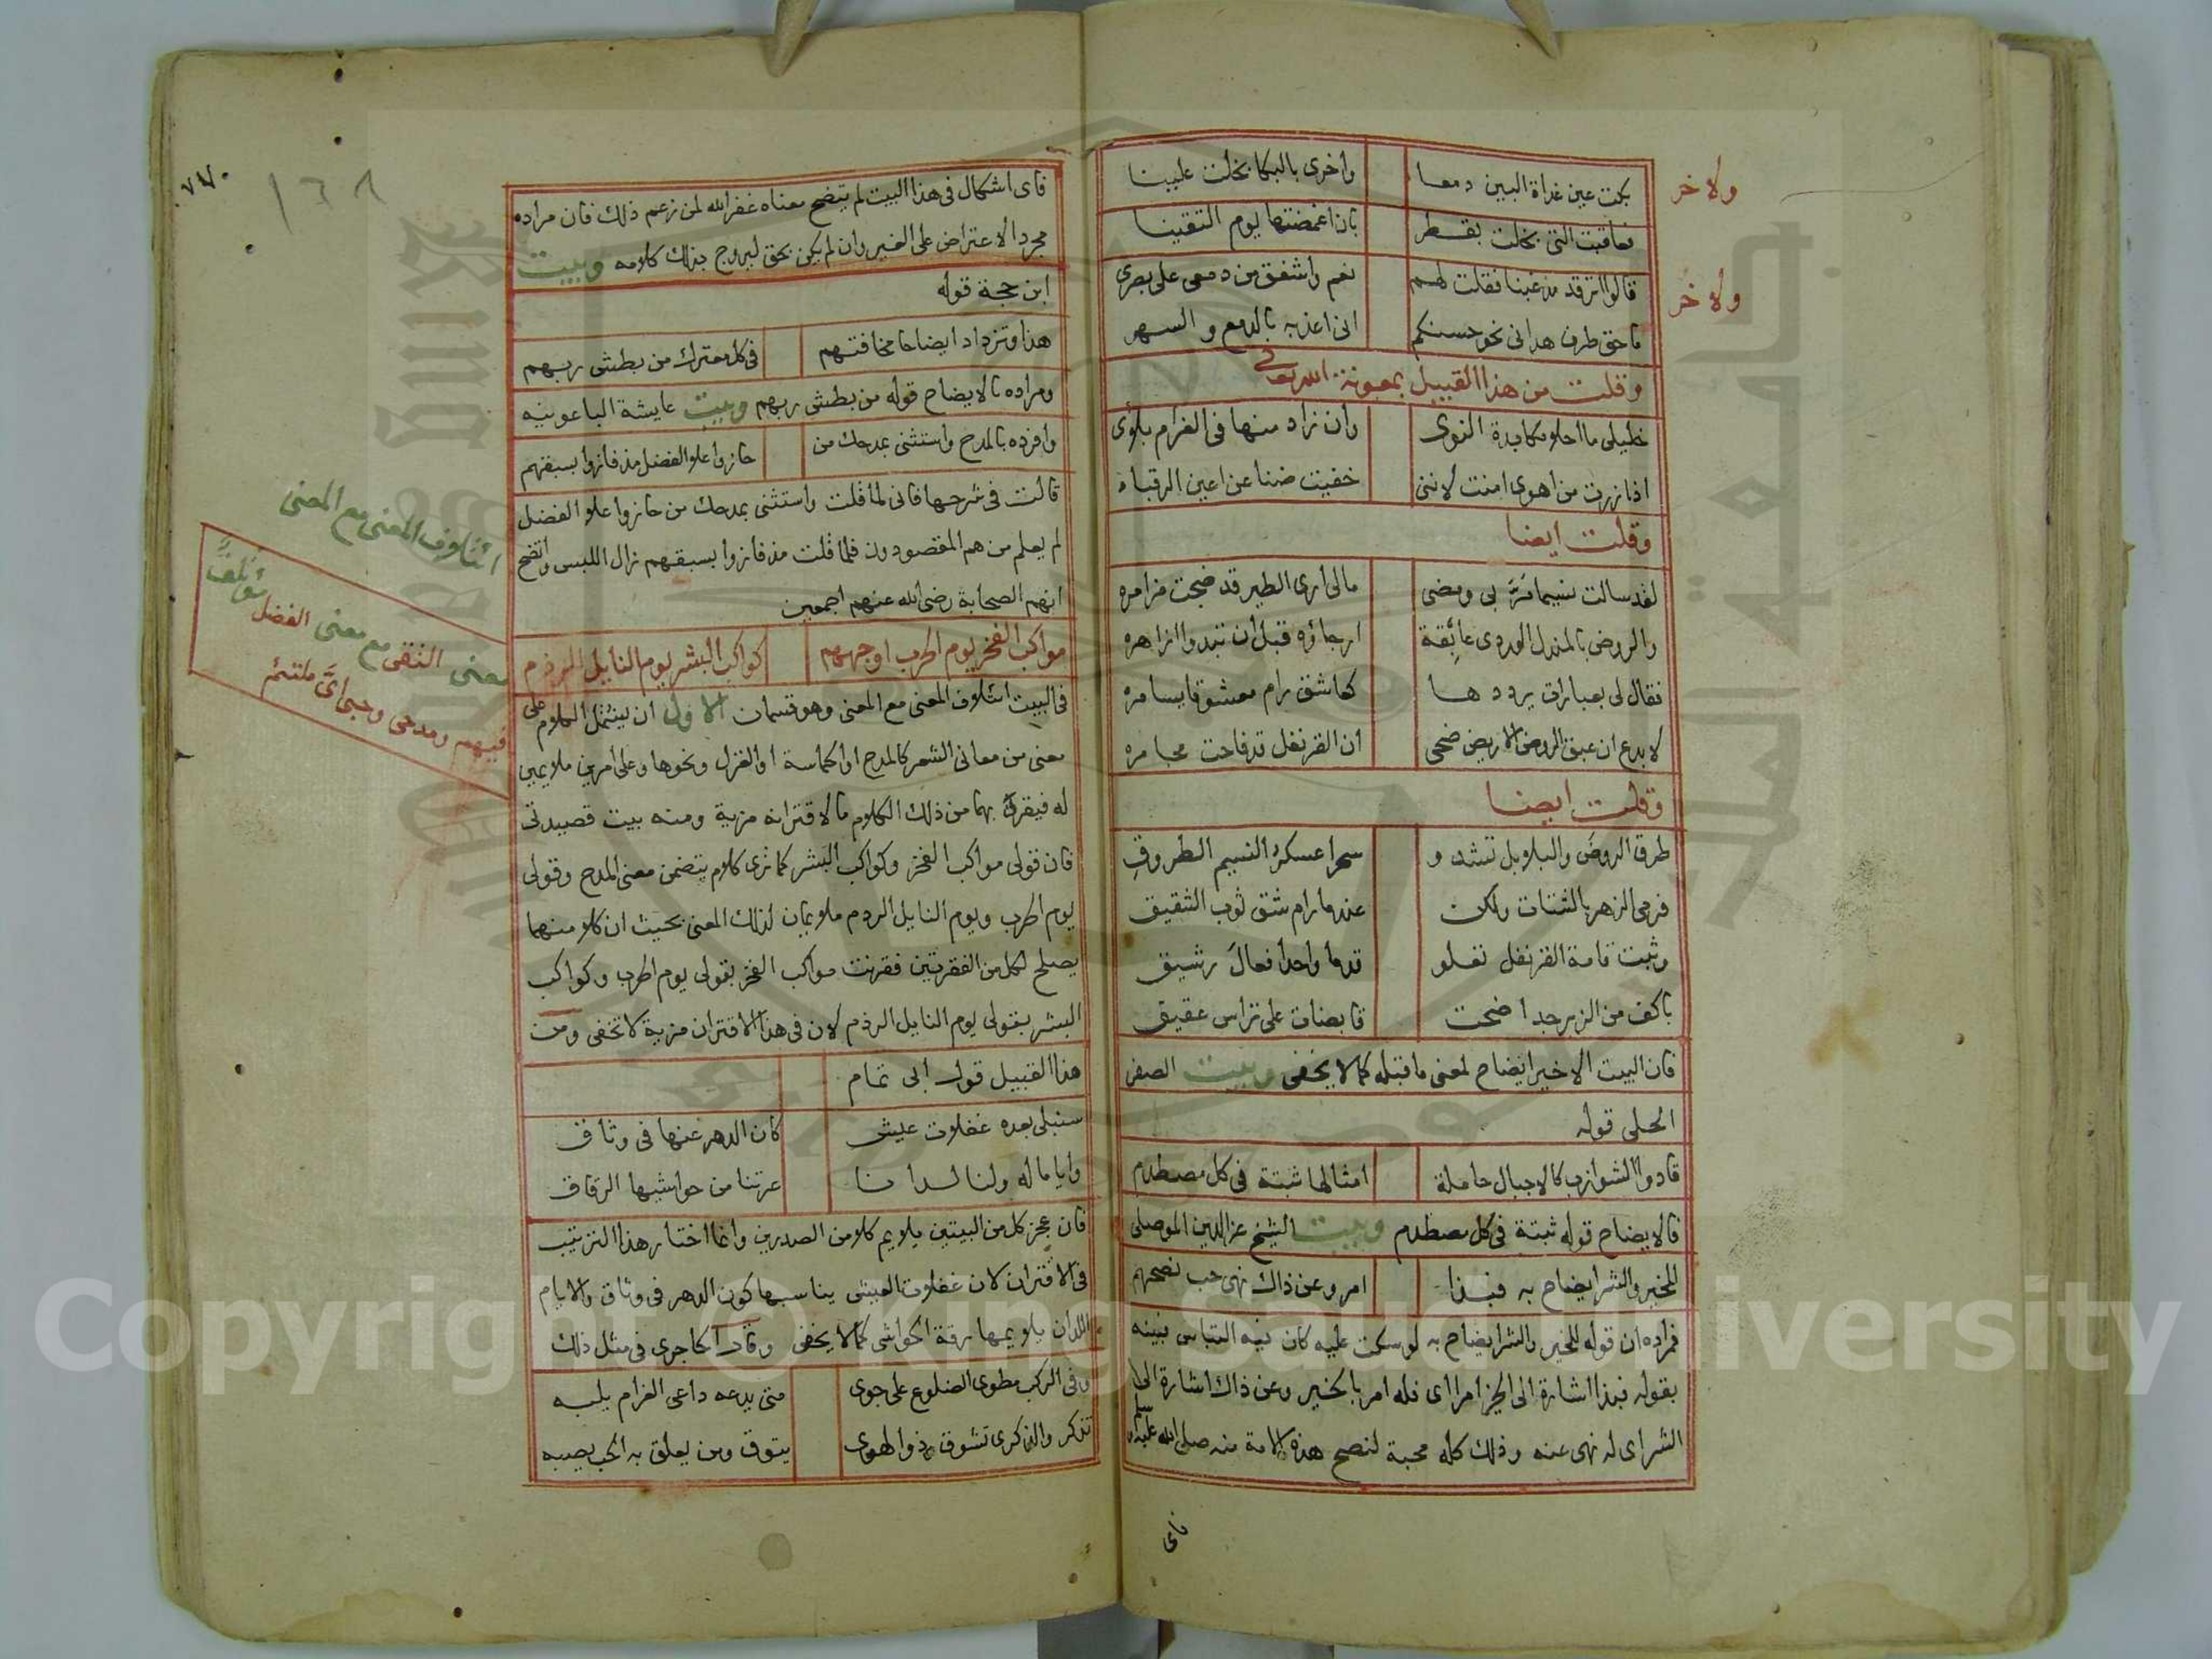 ولاخر
بكت عين غداة البين دمعا واخرى بالبكا بخلت علينا
فعاقبت التى بخلت بقطر بان اغمضتها يوم التقينا
ولاخر
قالوا اترقد مذ غبنا فقلت لهم نعم واشفق من دمعى على بصرى
ماحق طرف هدانى نحو حسنكم انى اعذبه بالدمع والسهر
وقلت من هذا القبيل بمعونة الله تعالى
خليلى ما احلا مكابدة النوى وان زاد منها فى الغرام بلوى
اذا زرت من اهوى امنت لاننى خفيت ضنا عن اعين الرقباء
وقلت ايضا
لقد سالت نسيما مرّ بى ومضى مالى ارى الطير قد ضجت مزامره
والروض بالمندل الوردى عابقة ارجاؤه قبل ان تبدوا ازاهره
فقال لى بعبارات يرددها كعاشق رام معشوقا يسامره
لا بدع ان عبق الروض الاريض ضحى ان القرنفل قد فاحت مجامره
وقلت ايضا
طرق الروض والبلابل تشدو سحرا عسكر النسيم الطروق
فرمى الزهر بالشتات ولكن عندما رام شق ثوب الشقيق
وثبت قامة القرنفل تعلو قدما واحدا فعال رشيق
باكف من الزبرجد اضحت قابضات على تراس عقيق
فان البيت الاخير ايضاح لمعنى ما قبله كما لا يخفى وبيت الصفى
الحلى قوله
قادوا الشوازب كالاجبال حاملة امثالها ثبتة فى كل مصطدم
فالايضاح قوله ثبتة فى كل مصطدم وبيت الشيخ عز الدين الموصلى
للخير والشر ايضاح به فبذا امر وعن ذاك نهى حب نصحهم
فمراده ان قوله للخير والشر ايضاح به لو سكت عليه كان فيه التباس بينه
بقوله فبذا اشارة الى الخير امر اى فله امر بالخير وعن ذاك اشارة الى
الشر اى له نهى عنه وذلك كله محبة لنصح هذه الامة منه صلى الله عليه وسلم
فاى
فاى اشكال فى هذا البيت لم يتضح معناه غفر الله لمن زعم ذلك فان مراده
مجرد الاعتراض على الغير وان لم يكن بحق ليروج بذلك كلامه وبيت
ابن حجة قوله
هذا وتزداد ايضاحا مخافتهم فى كل معترك من بطش ربهم
ومراده بالايضاح قوله من بطش ربهم وبيت عايشة الباعونيه
وافرده بالمدح واستثنى بمدحك من حازوا علو الفضل مذ فازوا بسبقهم
قالت فى شرحها فانى لما قلت واستثنى بمدحك من حازوا علو الفضل
لم يعلم من هم المقصودون فلما قلت مذ فازوا بسبقهم زال اللبس واتضح
انهم الصحابة رضى الله عنهم اجمعين
مواكب الفخر يوم الحرب اوجههم كواكب البشر يوم النايل الرذم
فى البيت ائتلاف المعنى مع المعنى وهو قسمان الاول ان يشتمل الكلام على
معنى من معانى الشعر كالمدح او الحماسة او الغزل ونحوها وعلى امرين ملايمين
له فيقرن بهما من ذلك الكلام ما لاقترانه مزية ومنه بيت قصيدتى
فان قولى مواكب الفخر وكواكب البشر كما ترى كلام يتضمن معنى المدح وقولى
يوم الحرب ويوم النايل الرذم ملايمان لذلك المعنى بحيث ان كلا منهما
يصلح لكل من الفقرتين فقرنت مواكب الفخر بقولى يوم الحرب وكواكب
البشر بقولى يوم النايل الرذم لان فى هذا الاقتران مزية لا تخفى ومن
هذا القبيل قول ابى تمام
سنبلى بعده غفلات عيش كان الدهر عنها فى وثاق
واياما له ولنا لدانا عرتنا من حواشيها الرقاق
فان عجز كل من البيتين يلايم كلا من الصدرين وانما اختار هذا الترتيب
فى الاقتران لان غفلات العيش يناسبها كون الدهر فى وثاق والايام
اللدان يلايمها رقة الحواشى كما لا يخفى وقال الحاجرى فى مثل ذلك
وفى الركب مطوى الضلوع على جوى متى يدعه داعى الغرام يلبه
تذكر والذكرى تشوق وذوالهوى يتوق ومن يعلق به الحب يصبه
ائتلاف المعنى مع المعنى
معنى التقى مع معنى الفضل مؤتلف
فيهم ومدحى وحبى اىّ ملتئم
١٣٨